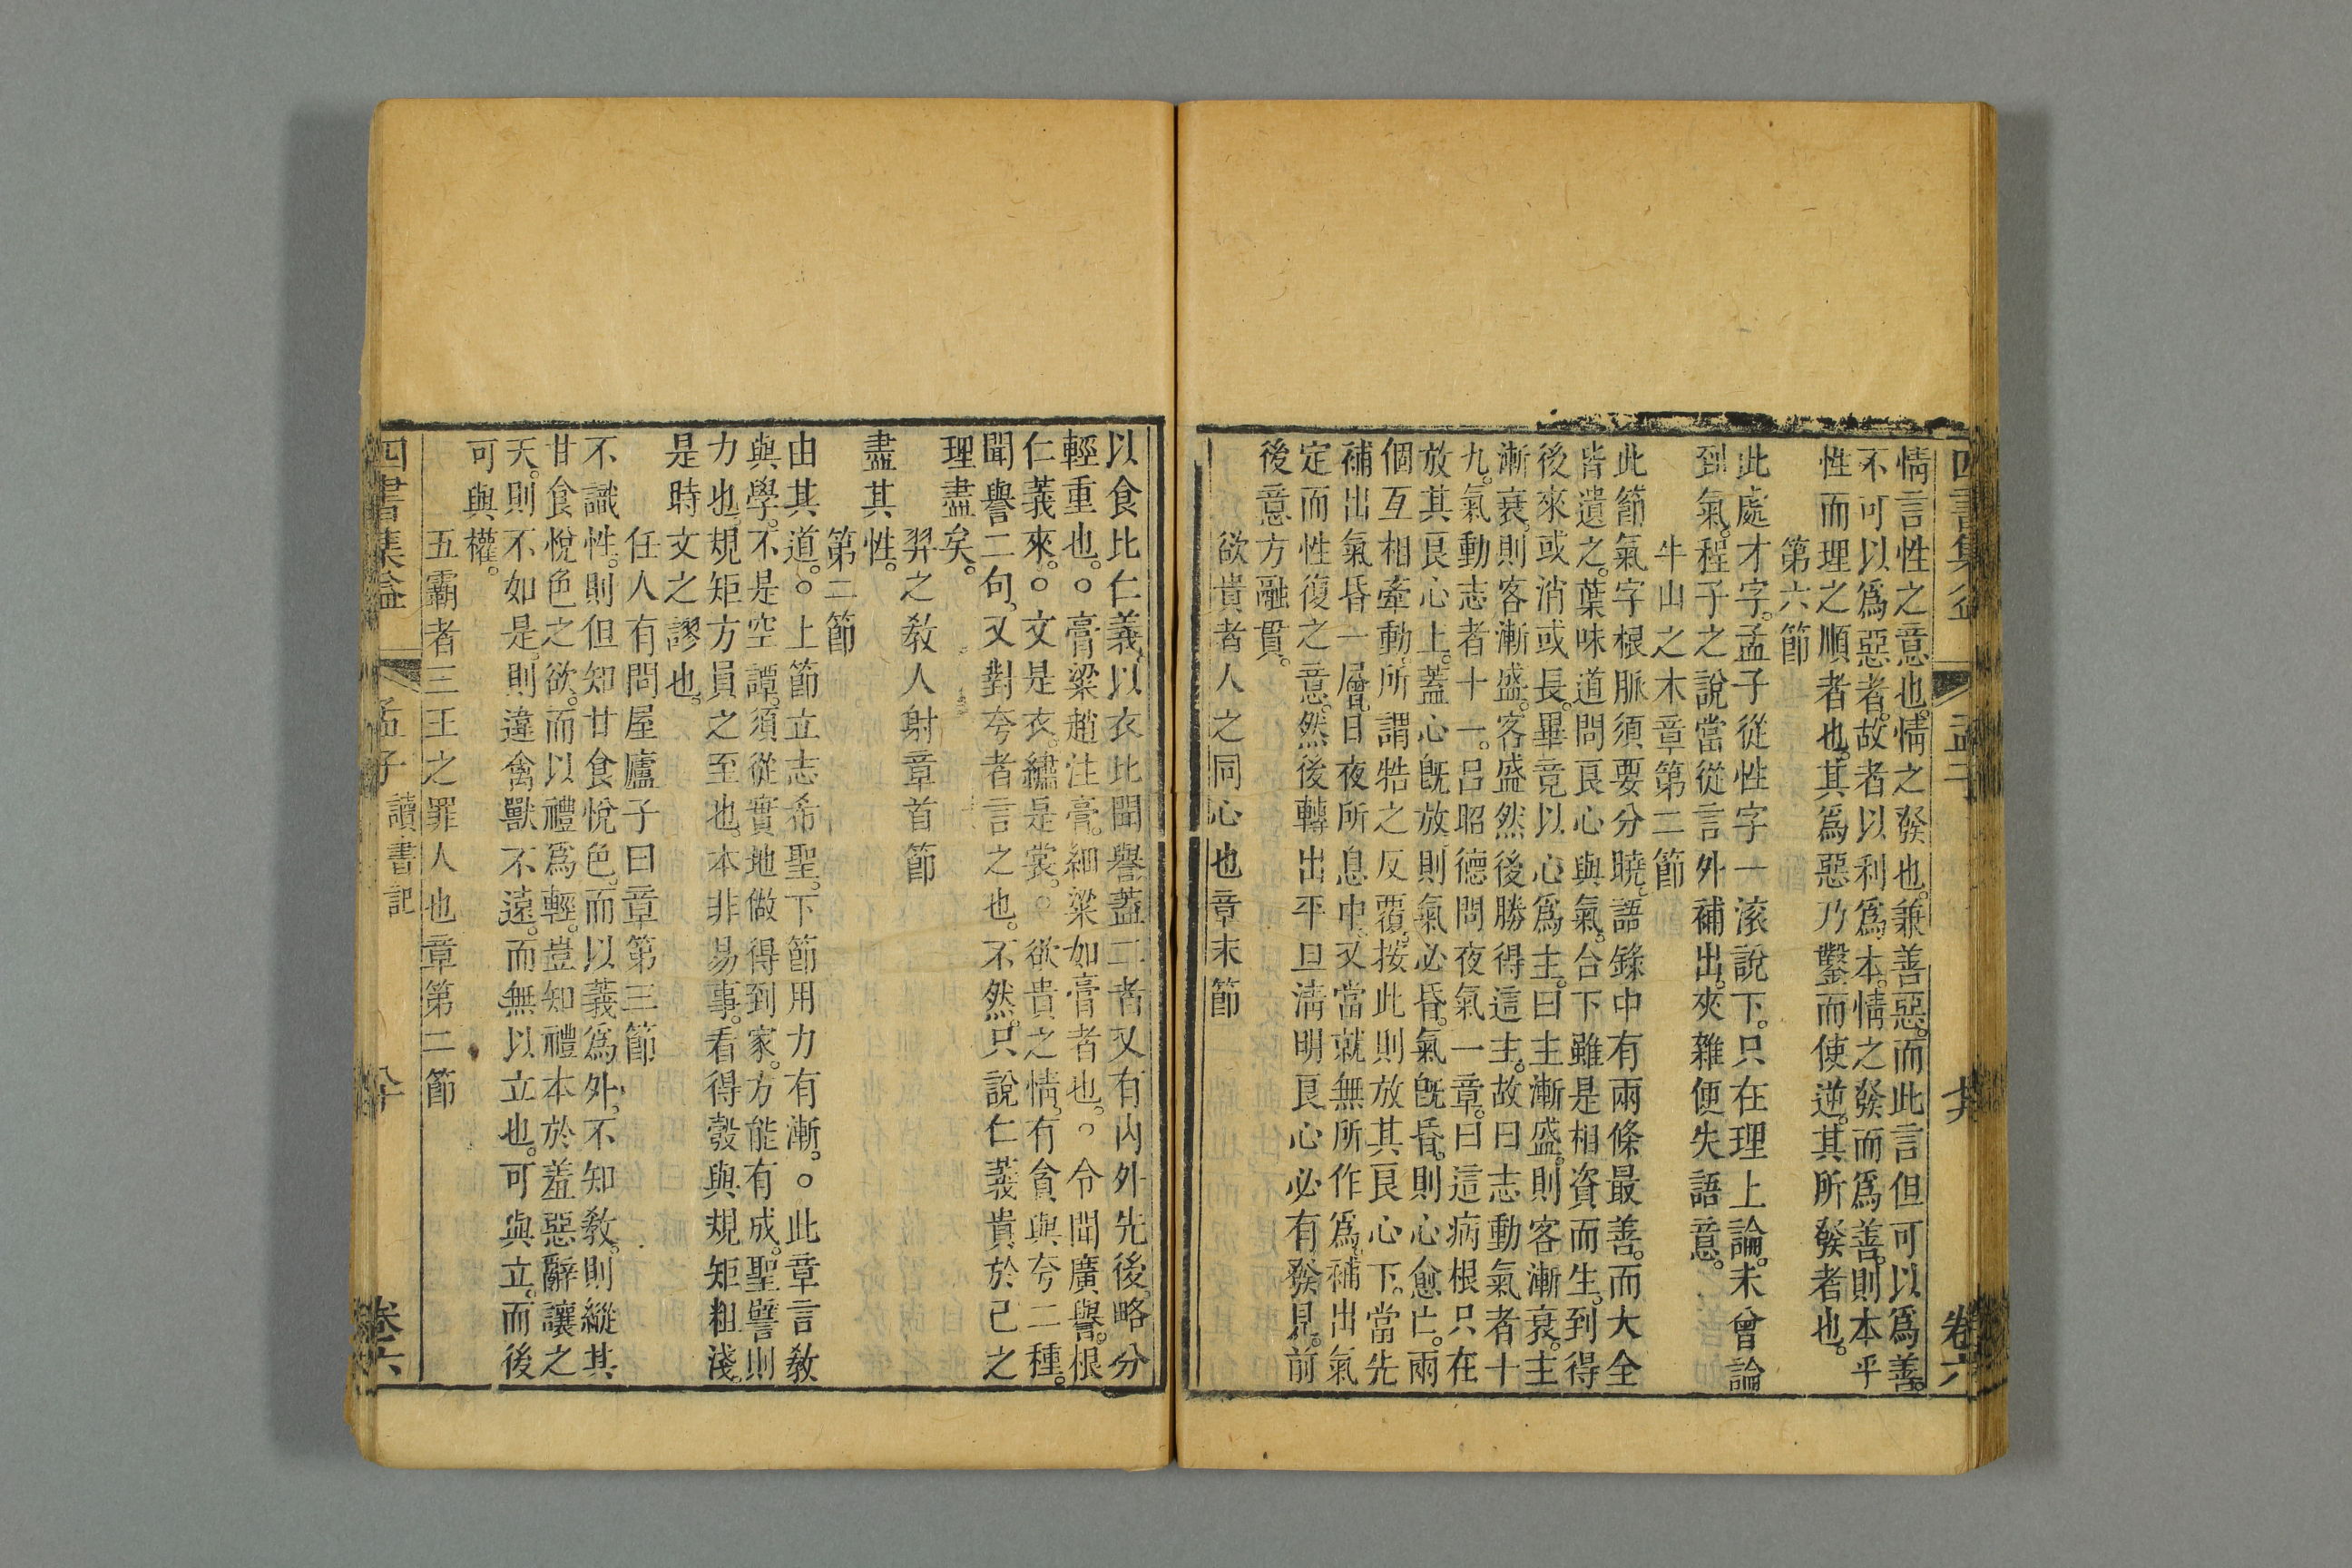 情言性之意也。情之發也。兼善惡。而此言但可以爲善。
不可以爲惡者。故者以利爲本。情之發而爲善。則本乎
性而理之順者也。其爲惡乃鑿而使逆。其所發者也。
第六節
此處才字。孟子從性字一滚說下。只在理上論。未曾論
到氣。程子之說當從言外補出。夾雜便失語意。
牛山之木章第二節
此節氣字根脈須要分曉。語錄中有兩條最善。而大全
皆遺之。葉味道問良心與氣。合下雖是相資而生。到得
後來或消或長。畢竟以心爲主。曰主漸盛。則客漸衰。主
漸衰。則客漸盛。客盛然後勝得這主。故曰志動氣者十
九。氣動志者十一。呂昭德問夜氣一章。曰這病根只在
放其良心上。蓋心旣放。則氣必昏。氣旣昏。則心愈亡。兩
個互相牽動。所謂牿之反覆。按此則放其良心下。當先
補出氣昏一層。日夜所息中。又當就無所作爲。補出氣
定而性復之意。然後轉出平旦淸明良心必有發見。前
後意方融貫。
欲貴者人之同心也章末節
以食比仁義。以衣比聞譽。蓋二者又有内外先後。略分
輕重也。○膏粱趙注膏。細粱如膏者也。○令聞廣譽。根
仁義來。○文是衣。繡是裳。○欲貴之情。有貪與夸二種。
聞譽二句。又對夸者言之也。不然。只說仁義貴於已之
理盡矣。
羿之敎人射章首節
盡其性。
第二節
由其道。○上節立志希聖。下節用力有漸。○此章言敎
與學。不是空譚。須從實地做得到家。方能有成。聖譬則
力也。規矩方員之至也。本非易事。看得彀與規矩粗淺。
是時文之謬也。
任人有問屋廬子曰章第三節
不識性。則但知甘食悅色。而以義爲外。不知敎。則縱其
甘食悅色之欲。而以禮爲輕。豈知禮本於羞惡辭讓之
天。則不如是。則違禽獸不遠。而無以立也。可與立。而後
可與權。
五霸者三王之罪人也章第二節
四書集益 孟子 讀書記 卷六